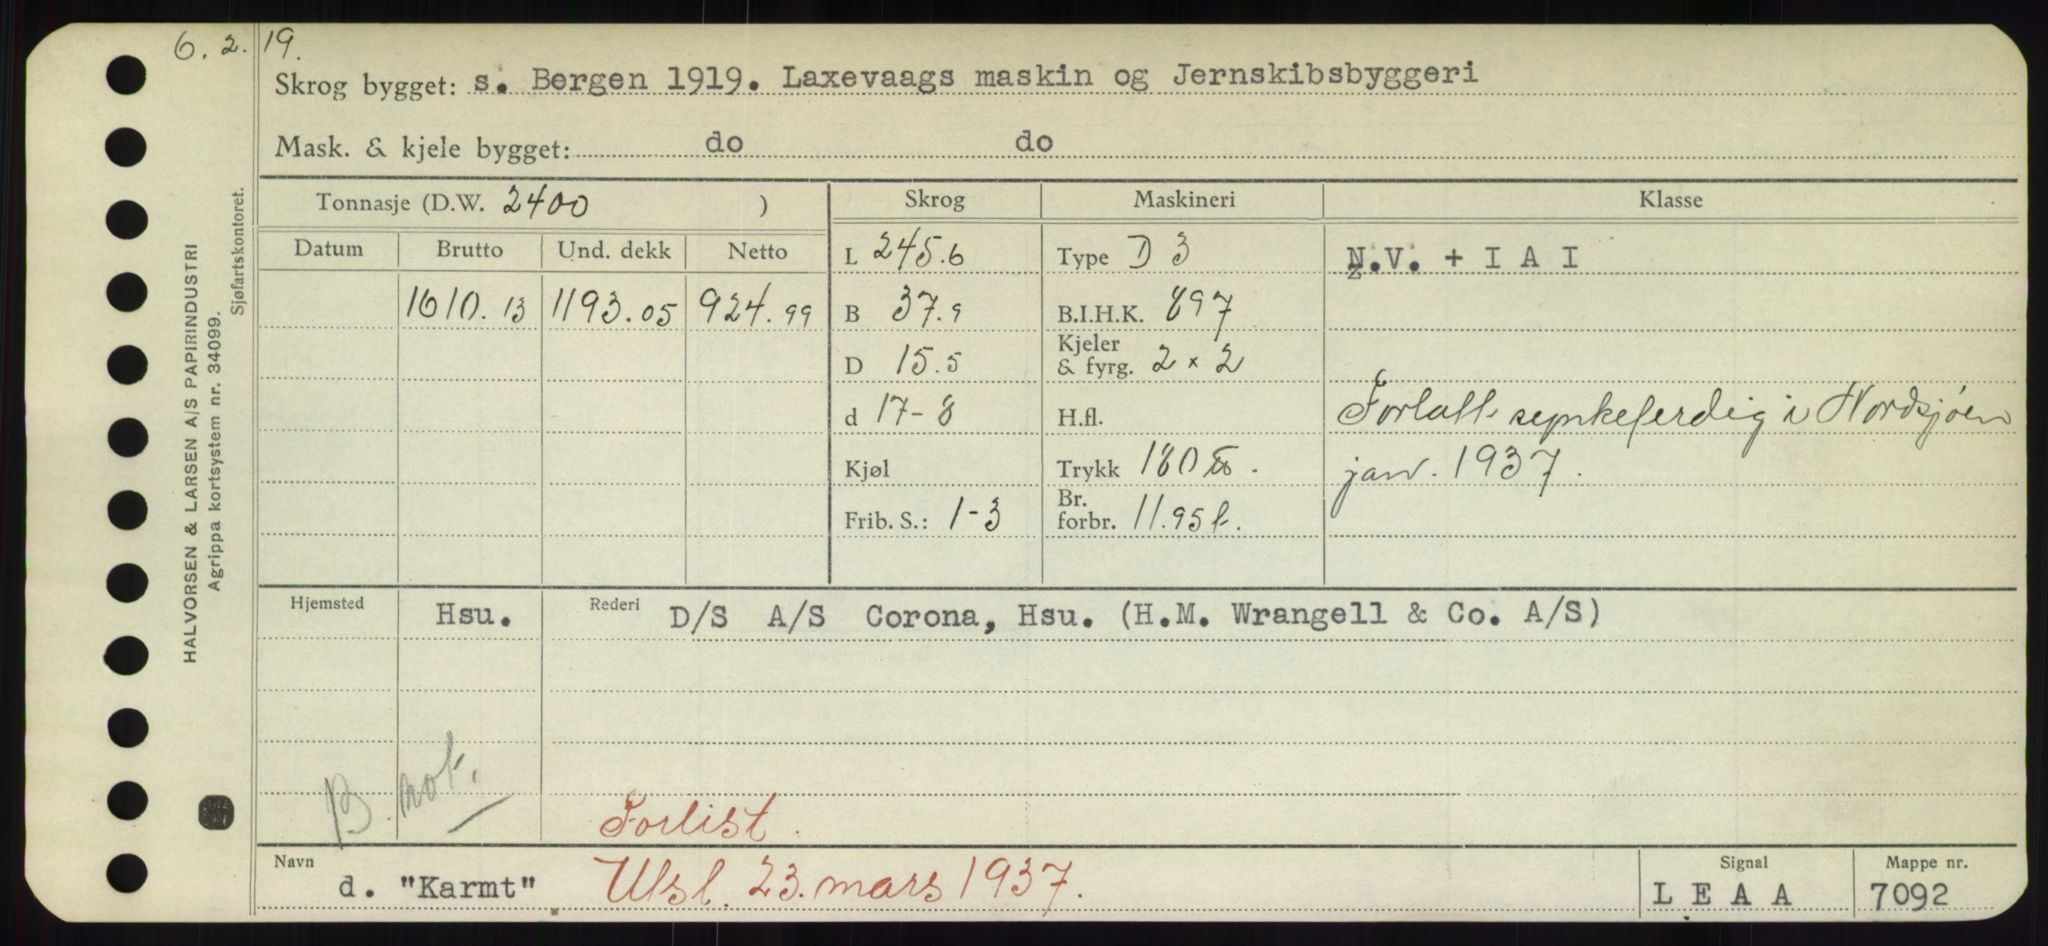 6. 2. 19.
Skrog bygget: s. Bergen 1919. Laxevaags maskin og Jernskibsbyggeri
Mask. & kjele bygget: do do
Tonnasje (D.W. 2400 ) Skrog Maskineri Klasse
Datum Brutto Und. dekk Netto
L 245.6 Type D 3 N.V. + I A I
1610.13 1193.05 924.99 B 37.9 B.I.H.K. 897
D 15.5 Kjeler & fyrg. 2 × 2
d 17-8 H.fl. Forlatt synkeferdig i Nordsjøen
Kjøl Trykk 180 . jan. 1937.
Frib. S.: 1-3 Br. forbr. 11.95 t.
Hjemsted Hsu. Rederi D/S A/S Corona, Hsu. (H.M. Wrangell & Co. A/S)
B. not.
Forlist.
Navn d. "Karmt" Utsl. 23. mars 1937. Signal L E A A Mappe nr. 7092
HALVORSEN & LARSEN A/S PAPIRINDUSTRI
Agrippa kortsystem nr. 34099.
Sjøfartskontoret.